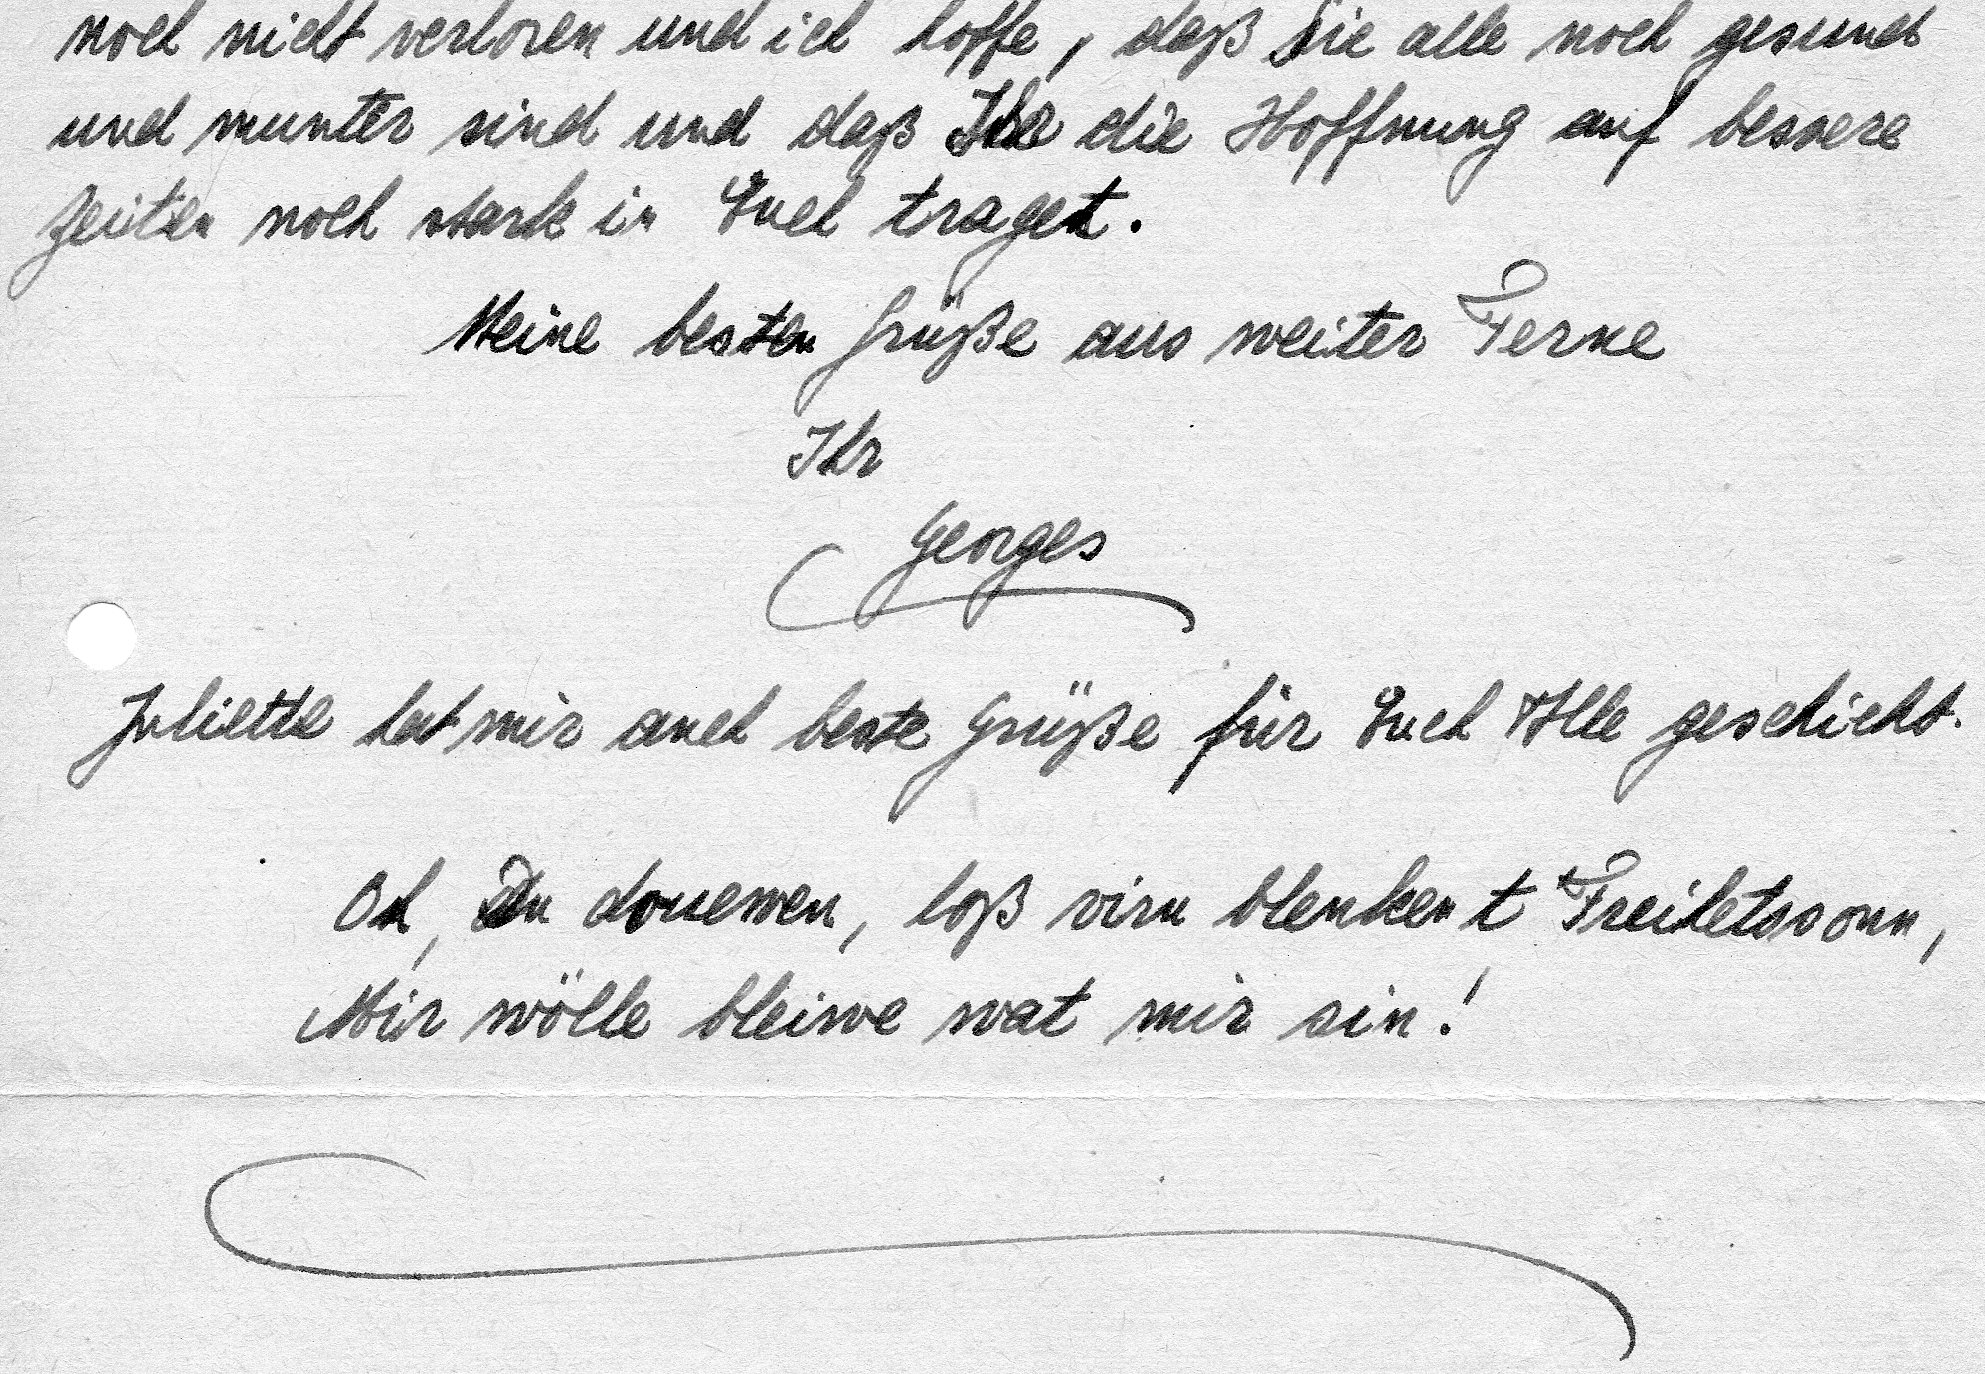 noch nicht verloren und ich hoffe, daß Sie alle noch gesund
und munter sind und daß Ihr die Hoffnung auf bessere
Zeiten noch stark in Euch traget.
Meine besten Grüße aus weiter Ferne
Ihr
Georges
Juliette hat mir auch beste Grüße für Euch Alle geschickt.
Oh, Du douewen, loß viru blenken t'Freihetssonn,
Mir wölle bleiwe wat mir sin!